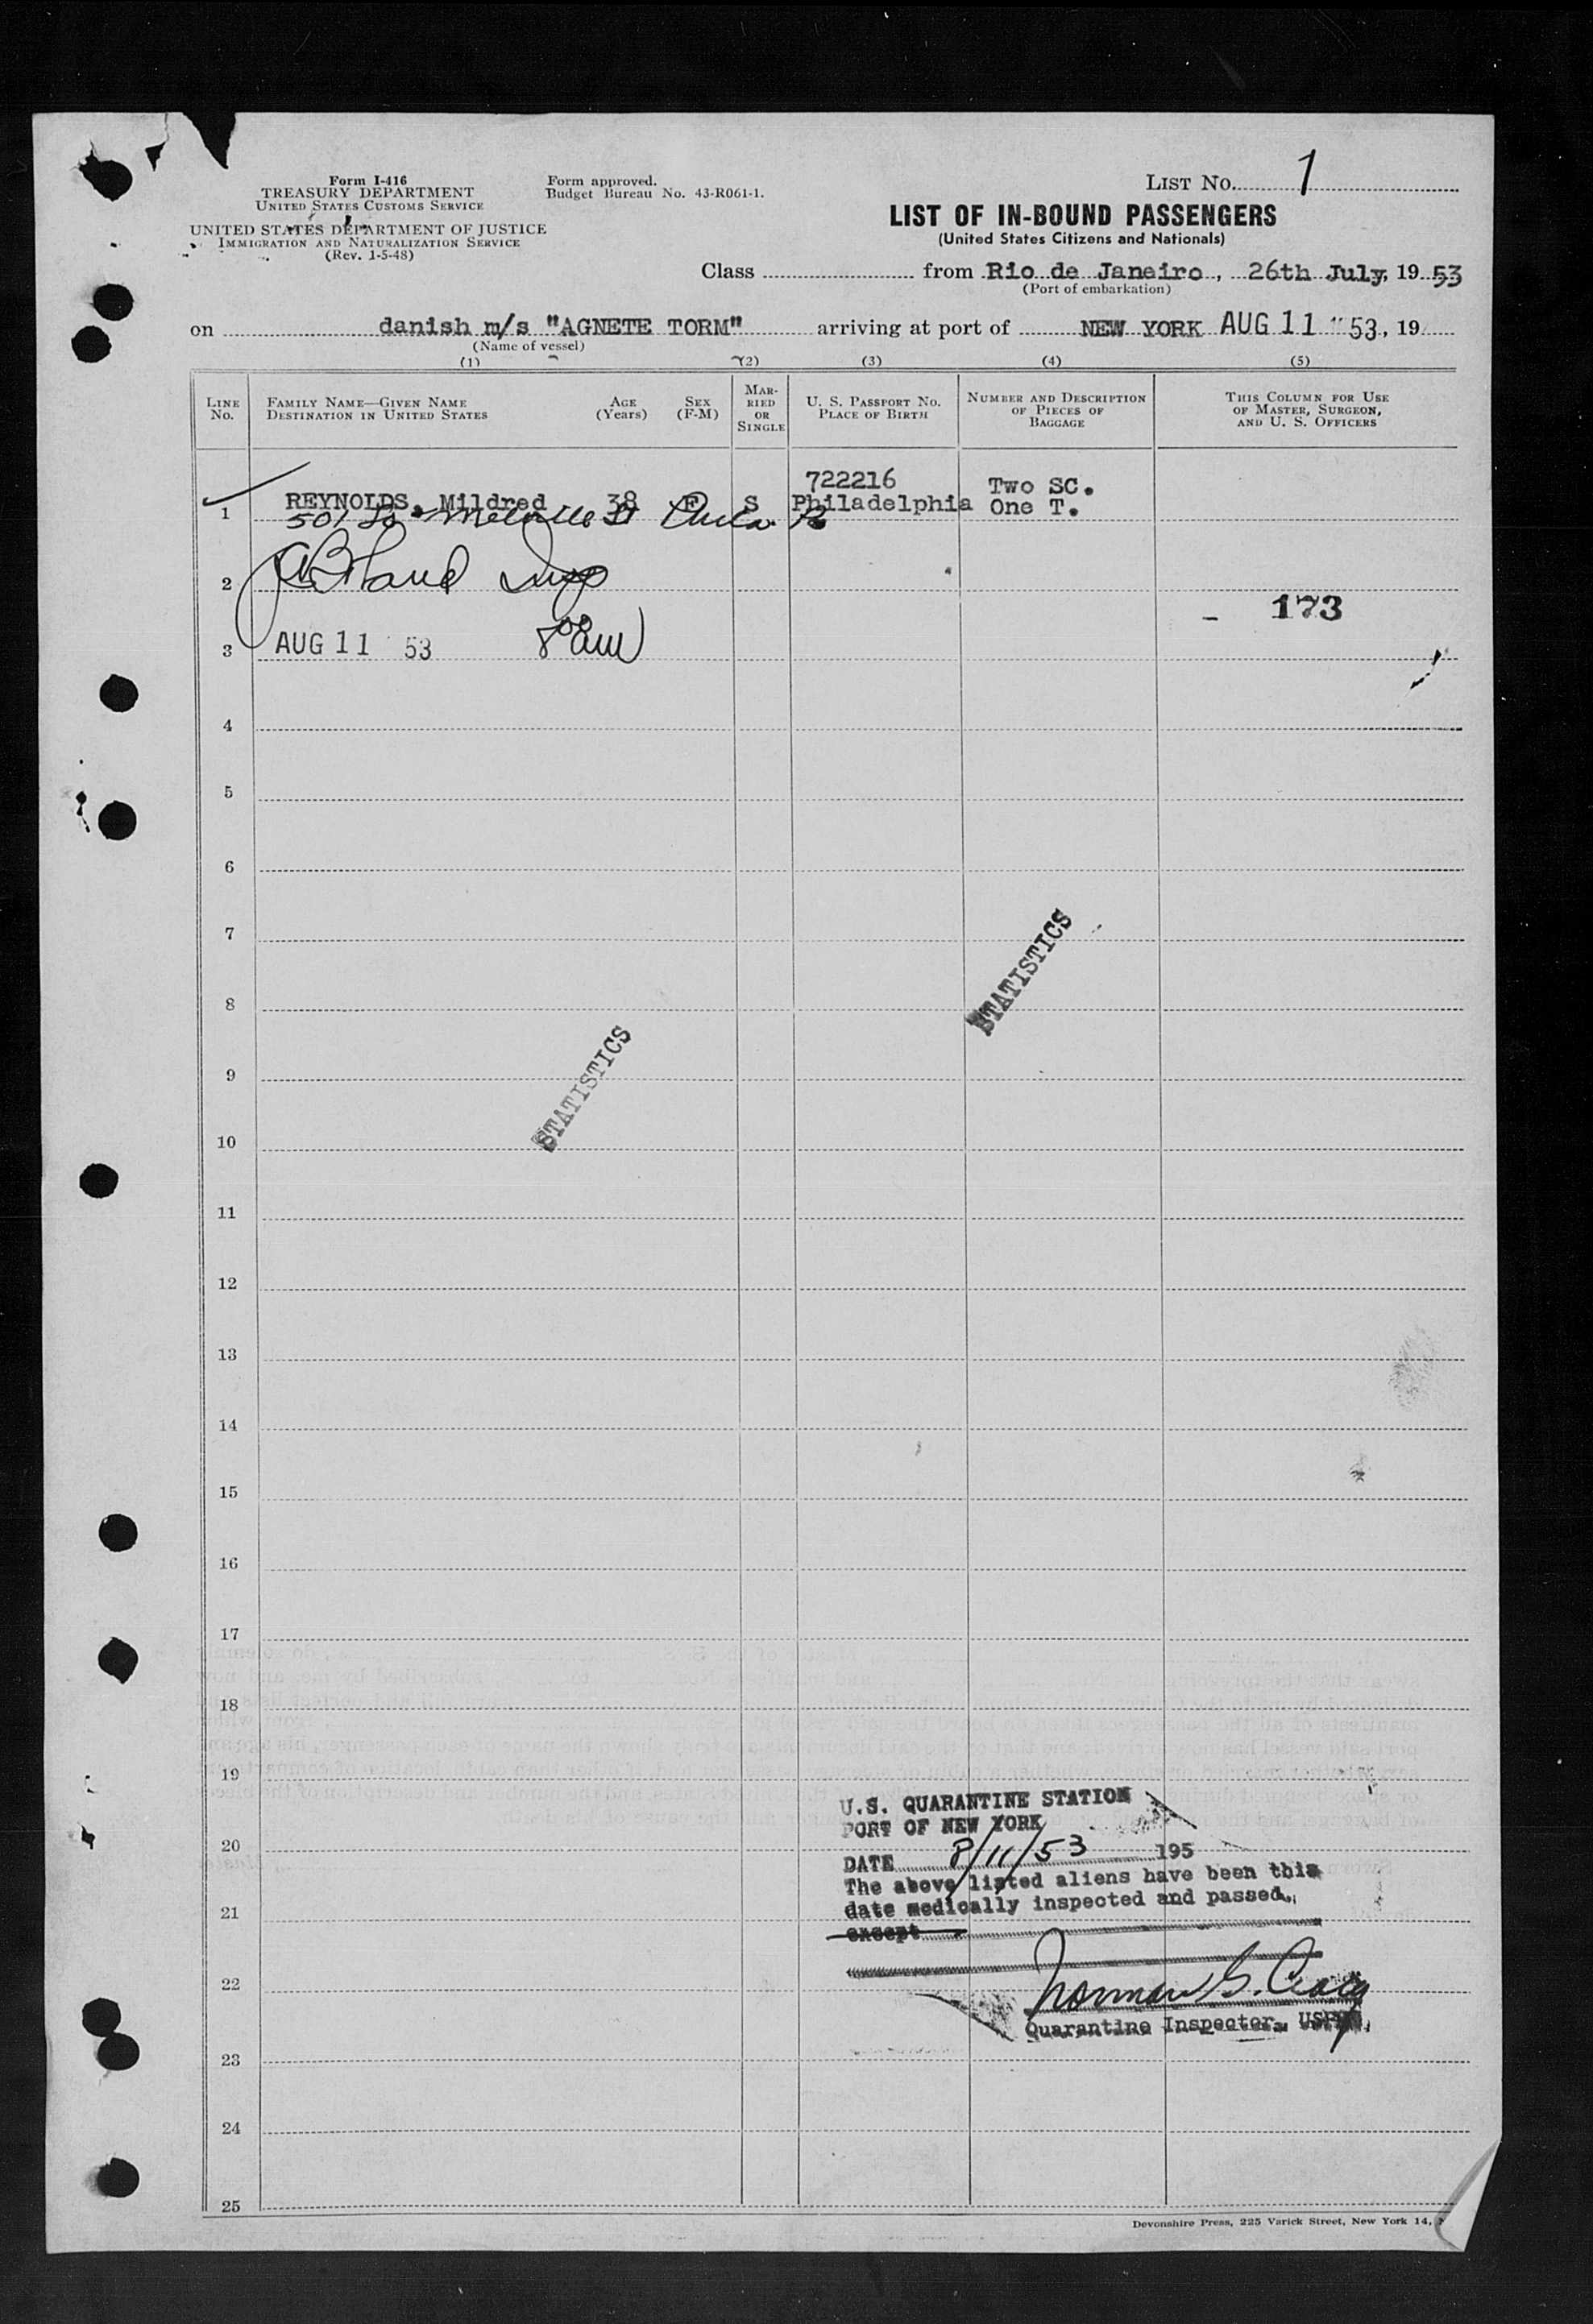 Form I-416
TREASURY DEPARTMENT
UNITED STATES CUSTOMS SERVICE
UNITED STATES DEPARTMENT OF JUSTICE
IMMIGRATION AND NATURALIZATION SERVICE
(Rev. 1-5-48)
Form approved.
Budget Bureau No. 43-R061-1.
LIST NO. 1
LIST OF IN-BOUND PASSENGERS
(United States Citizens and Nationals)
Class from Rio de Janeiro, 26th July, 1953
(Port of embarkation)
on danish m/s "AGNETE TORM" arriving at port of NEW YORK AUG 11 53, 19
(Name of vessel)
(1) (2) (3) (4) (5)
LINE NO.
FAMILY NAME—GIVEN NAME
DESTINATION IN UNITED STATES
AGE (Years)
SEX (F-M)
MARRIED OR SINGLE
U. S. PASSPORT NO.
PLACE OF BIRTH
NUMBER AND DESCRIPTION
OF PIECES OF
BAGGAGE
THIS COLUMN FOR USE
OF MASTER, SURGEON,
AND U. S. OFFICERS
722216 Two SC.
1 REYNOLDS, Mildred 38 F S Philadelphia One T.
501 So Melville St Phila Pa
2
- 173
3 AUG 11 53 8 00 am
4
5
6
7
STATISTICS
8
9
STATISTICS
10
11
12
13
14
15
16
17
18
19
U.S. QUARANTINE STATION
PORT OF NEW YORK
20
DATE 8/11/53 195
The above listed aliens have been this
date medically inspected and passed.
21
except
22
Norman G.
Quarantine Inspector, USPHS.
23
24
25
Devonshire Press, 225 Varick Street, New York 14,